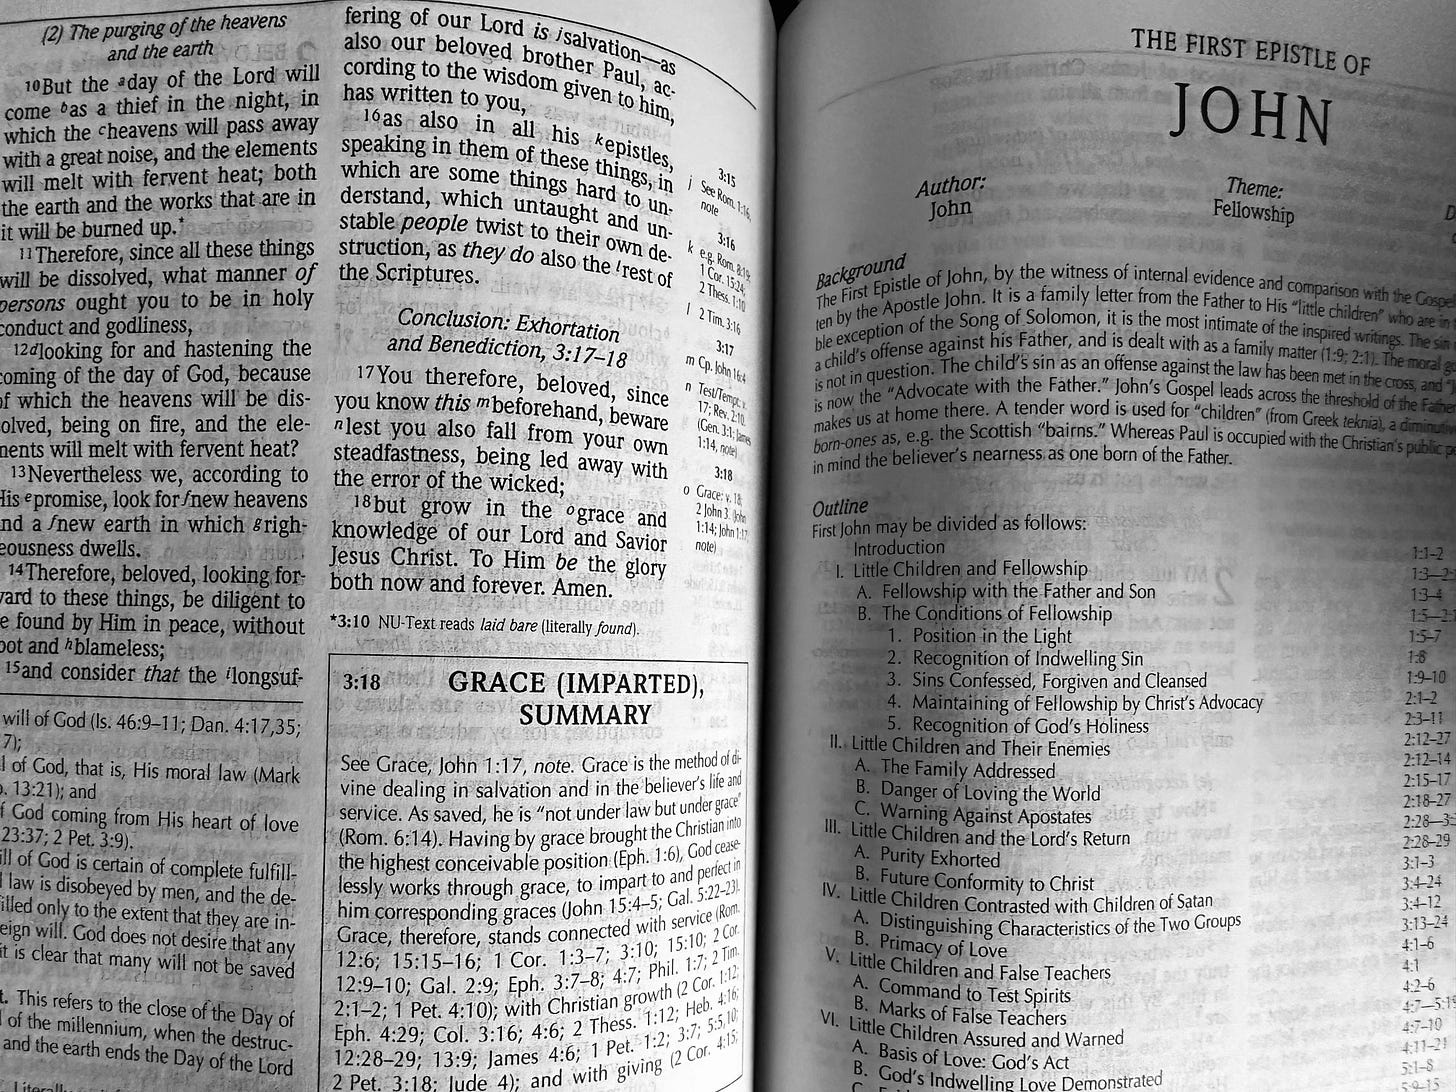 (2) The purging of the heavens
and the earth
10But the aday of the Lord will
come bas a thief in the night, in
which the cheavens will pass away
with a great noise, and the elements
will melt with fervent heat; both
the earth and the works that are in
it will be burned up.*
11Therefore, since all these things
will be dissolved, what manner of
persons ought you to be in holy
conduct and godliness,
12dlooking for and hastening the
coming of the day of God, because
of which the heavens will be dis-
olved, being on fire, and the ele-
nents will melt with fervent heat?
13Nevertheless we, according to
His epromise, look for fnew heavens
nd a fnew earth in which grigh-
eousness dwells.
14Therefore, beloved, looking for-
vard to these things, be diligent to
e found by Him in peace, without
pot and hblameless;
15and consider that the ilongsuf-
will of God (Is. 46:9–11; Dan. 4:17,35;
7);
l of God, that is, His moral law (Mark
13:21); and
f God coming from His heart of love
23:37; 2 Pet. 3:9).
ill of God is certain of complete fulfill-
law is disobeyed by men, and the de-
illed only to the extent that they are in-
eign will. God does not desire that any
it is clear that many will not be saved
t. This refers to the close of the Day of
of the millennium, when the destruc-
and the earth ends the Day of the Lord
fering of our Lord is jsalvation—as
also our beloved brother Paul, ac-
cording to the wisdom given to him,
has written to you,
16as also in all his kepistles,
speaking in them of these things, in
which are some things hard to un-
derstand, which untaught and un-
stable people twist to their own de-
struction, as they do also the lrest of
the Scriptures.
Conclusion: Exhortation
and Benediction, 3:17–18
17You therefore, beloved, since
you know this mbeforehand, beware
nlest you also fall from your own
steadfastness, being led away with
the error of the wicked;
18but grow in the ograce and
knowledge of our Lord and Savior
Jesus Christ. To Him be the glory
both now and forever. Amen.
*3:10 NU-Text reads laid bare (literally found).
3:15
j See Rom. 1:16,
note
3:16
k e.g. Rom. 8:19;
1 Cor. 15:24;
2 Thess. 1:10
l 2 Tim. 3:16
3:17
m Cp. John 16:4
n Test/Tempt: v.
17; Rev. 2:10.
(Gen. 3:1; James
1:14, note)
3:18
o Grace: v. 18;
2 John 3. (John
1:14; John 1:17,
note)
3:18 GRACE (IMPARTED),
SUMMARY
See Grace, John 1:17, note. Grace is the method of di-
vine dealing in salvation and in the believer's life and
service. As saved, he is "not under law but under grace"
(Rom. 6:14). Having by grace brought the Christian into
the highest conceivable position (Eph. 1:6), God cease-
lessly works through grace, to impart to and perfect in
him corresponding graces (John 15:4–5; Gal. 5:22–23).
Grace, therefore, stands connected with service (Rom.
12:6; 15:15–16; 1 Cor. 1:3–7; 3:10; 15:10; 2 Cor.
12:9–10; Gal. 2:9; Eph. 3:7–8; 4:7; Phil. 1:7; 2 Tim.
2:1–2; 1 Pet. 4:10); with Christian growth (2 Cor. 1:12;
Eph. 4:29; Col. 3:16; 4:6; 2 Thess. 1:12; Heb. 4:16;
12:28–29; 13:9; James 4:6; 1 Pet. 1:2; 3:7; 5:5,10;
2 Pet. 3:18; Jude 4); and with giving (2 Cor. 4:15;
THE FIRST EPISTLE OF
JOHN
Author: Theme:
John Fellowship
Background
The First Epistle of John, by the witness of internal evidence and comparison with the Gospel
ten by the Apostle John. It is a family letter from the Father to His "little children" who are in
ble exception of the Song of Solomon, it is the most intimate of the inspired writings. The sin
a child's offense against his Father, and is dealt with as a family matter (1:9; 2:1). The moral
is not in question. The child's sin as an offense against the law has been met in the cross, and
is now the "Advocate with the Father." John's Gospel leads across the threshold of the Father
makes us at home there. A tender word is used for "children" (from Greek teknia), a diminutive
born-ones as, e.g. the Scottish "bairns." Whereas Paul is occupied with the Christian's public
in mind the believer's nearness as one born of the Father.
Outline
First John may be divided as follows:
Introduction 1:1–2
I. Little Children and Fellowship 1:3–2
A. Fellowship with the Father and Son 1:3–4
B. The Conditions of Fellowship 1:5–2
1. Position in the Light 1:5–7
2. Recognition of Indwelling Sin 1:8
3. Sins Confessed, Forgiven and Cleansed 1:9–10
4. Maintaining of Fellowship by Christ's Advocacy 2:1–2
5. Recognition of God's Holiness 2:3–11
II. Little Children and Their Enemies 2:12–27
A. The Family Addressed 2:12–14
B. Danger of Loving the World 2:15–17
C. Warning Against Apostates 2:18–27
III. Little Children and the Lord's Return 2:28–3
A. Purity Exhorted 2:28–29
B. Future Conformity to Christ 3:1–3
IV. Little Children Contrasted with Children of Satan 3:4–24
A. Distinguishing Characteristics of the Two Groups 3:4–12
B. Primacy of Love 3:13–24
V. Little Children and False Teachers 4:1–6
A. Command to Test Spirits 4:1
B. Marks of False Teachers 4:2–6
VI. Little Children Assured and Warned 4:7–5:19
A. Basis of Love: God's Act 4:7–10
B. God's Indwelling Love Demonstrated 4:11–21
5:1–8